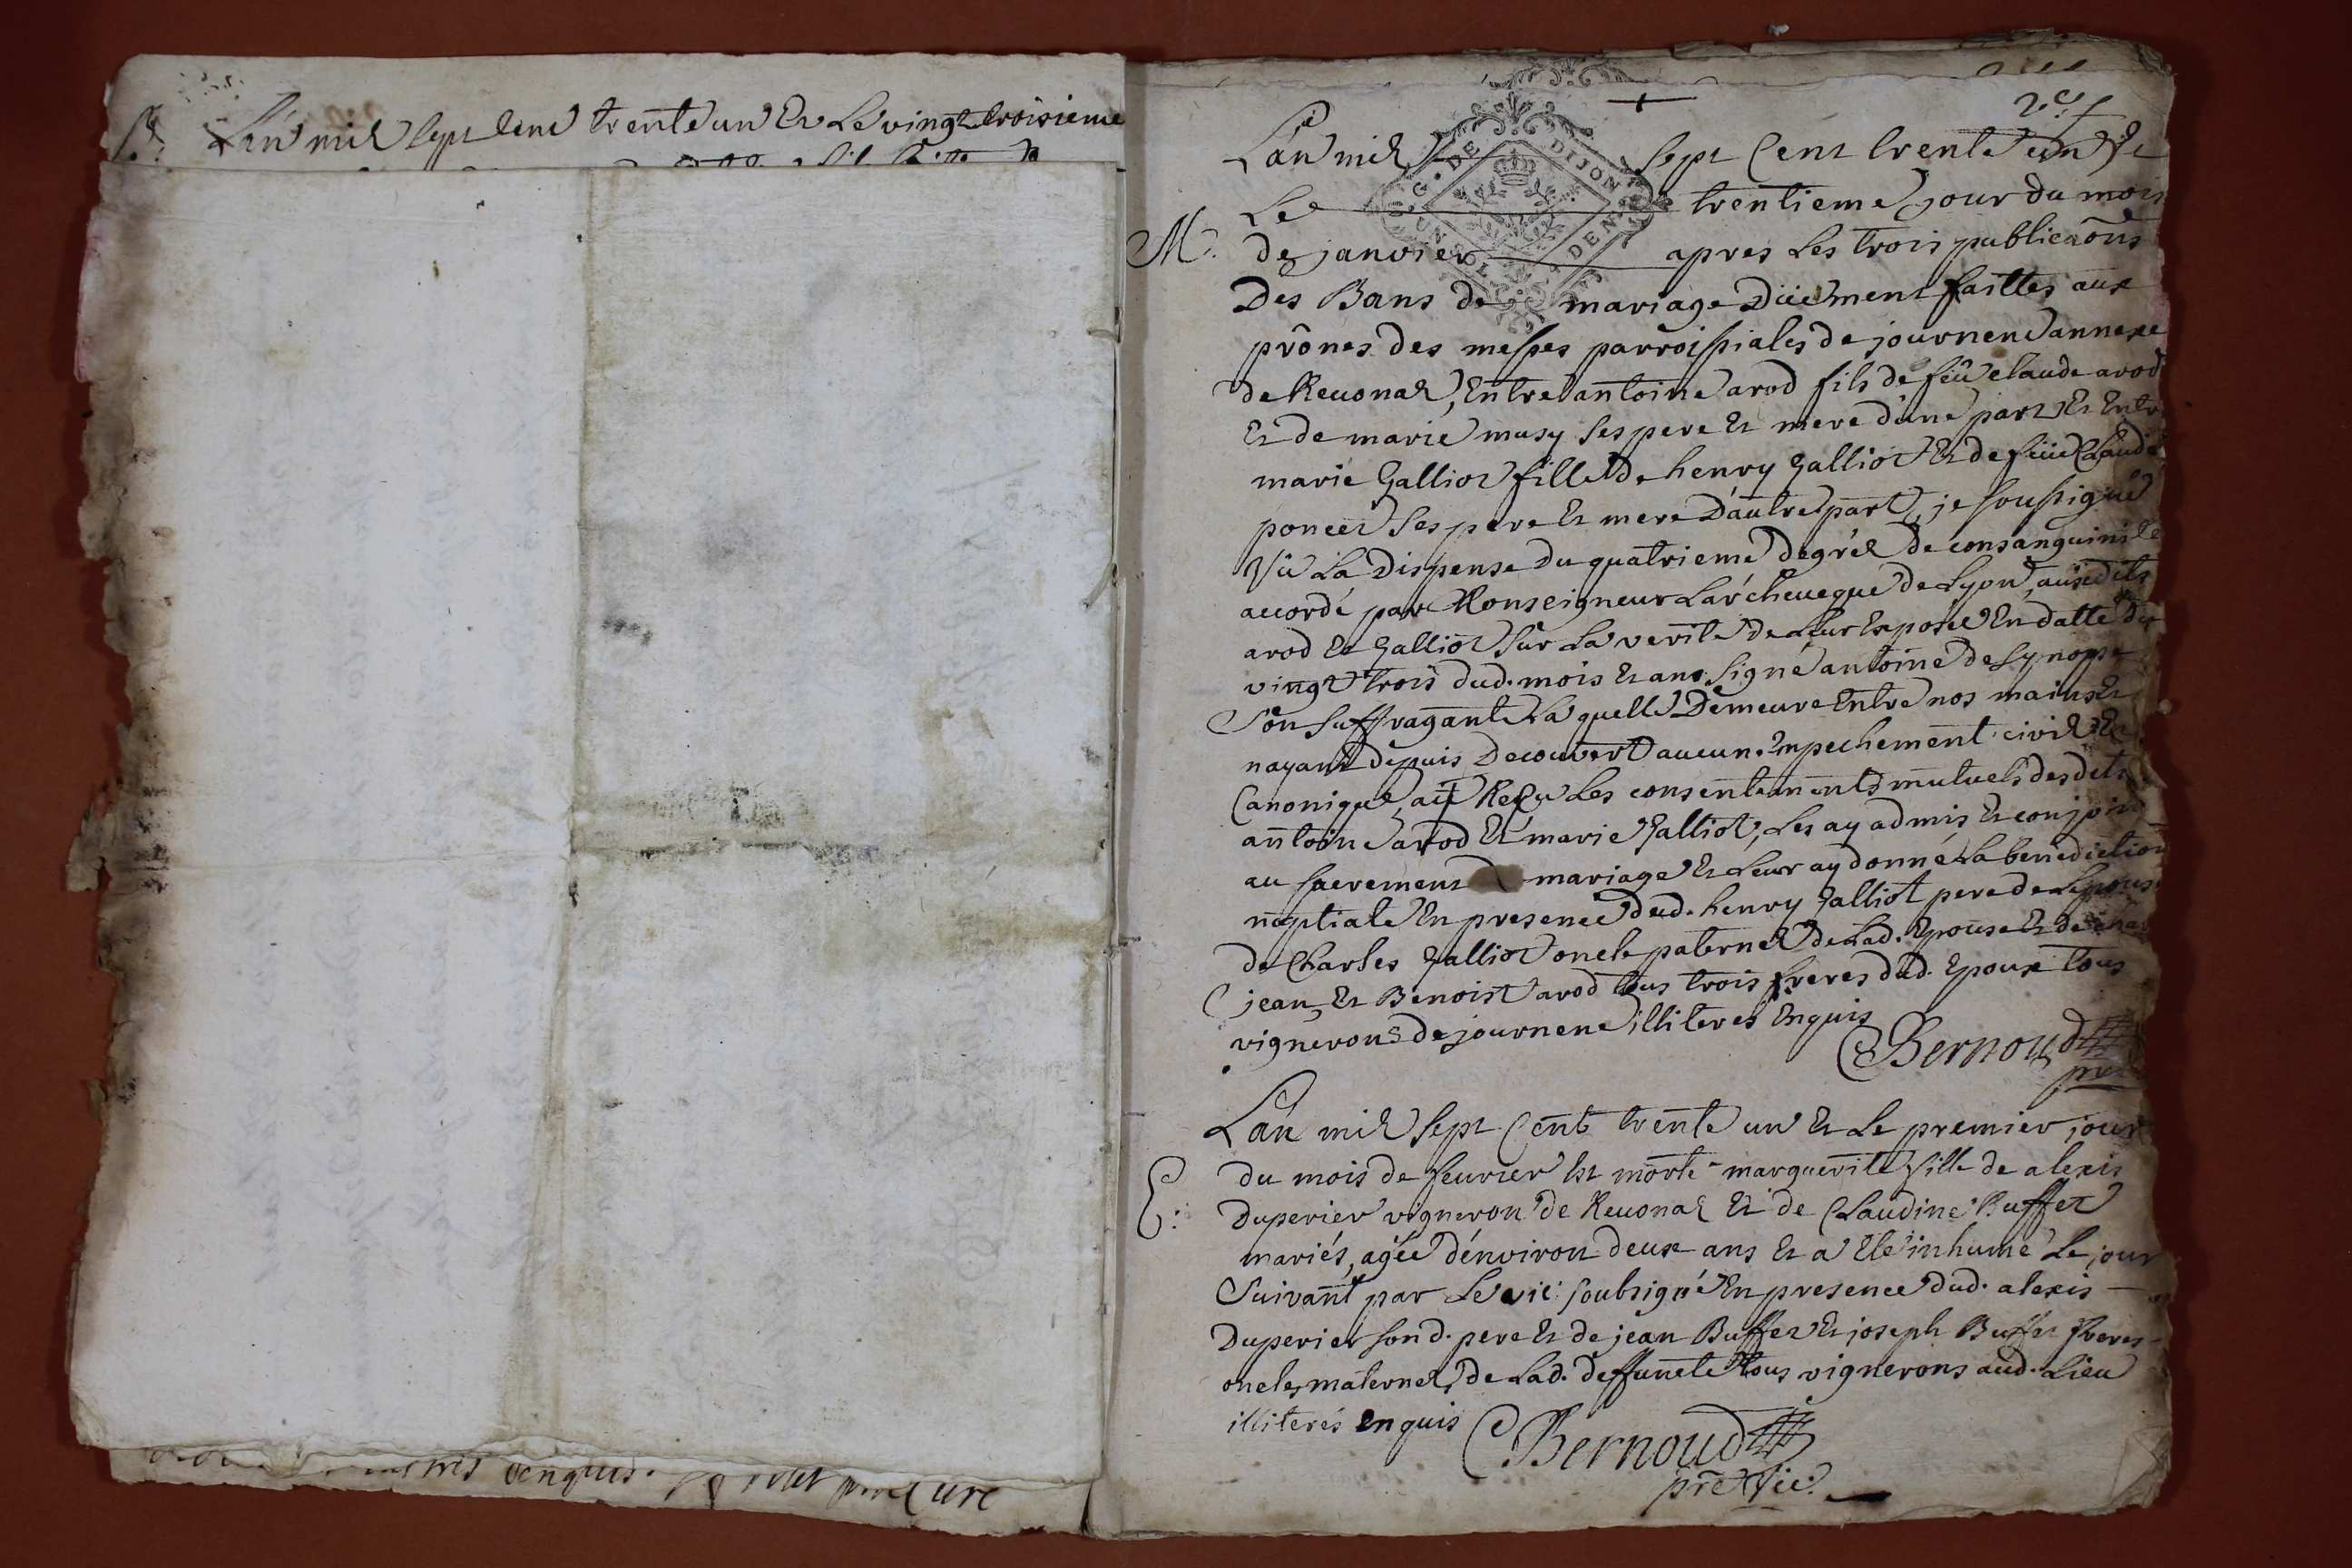 L'an mil sept cent trente un Et Le vingt troisieme
enquis. curé
2e f
G. DE DIJON
L'an mil sept Cent trente un Et
Le trentieme jour du mois
M. de janvier apres Les trois publicaons
Des Bans de mariage Düement faittes aux
prônes des messes parroissiales de journene annexe
de Reuonas, Entre antoine arod fils de feû claude arod
Et de marie musy ses pere Et mere d'une part Et Entre
marie Galliot fille de henry Galliot Et de feüe Claudi
poncet ses pere Et mere D'autre part, je soussigné
Vû La Dispense Du quatrieme Degréz De consanguinité
accordé par Monseigneur L'archeueque de Lyon, auxdits
arod Et Galliot sur La verité de Leur Exposéé En datte du
vingt trois dud. mois Et an signé antoine de Synope
son suffragant Laquelle Demeure Entre nos mains Et
nayant depuis Decouvert aucun Empechement civil Et
Canonique, aÿ Reçu Les consentements mutuels desdits
antoine arod Et marie Galliot, Les ay admis Et conjoin
au sacrement mariage Et Leur ay donné La benediction
nuptiale En presence dud. henry Galliot pere de Lepouse
de Charles Galliot oncle paternel de Lad. Epouse Et de
jean, Et Benoist arod tous trois freres dud. Epoux tous
vignerons de journene illiteres Enquis
Bernoud
pre
L'an mil sept Cent trente un Et Le premier jour
du mois de feurier Est morte marguerite fille de alexis
E: Duperier vigneron de Reuonas Et de Claudine Buffet
mariés, agéé d'environ deux ans Et a Eté inhumé Le jour
suivant par Le vic: soubsigné En presence dud. alexis
Duperier son d. pere Et de jean Buffet Et joseph Buffet freres
oncles maternels de Lad. deffuncte tous vignerons aud. Lieu
illiterés enquis Bernoud
pre vic: